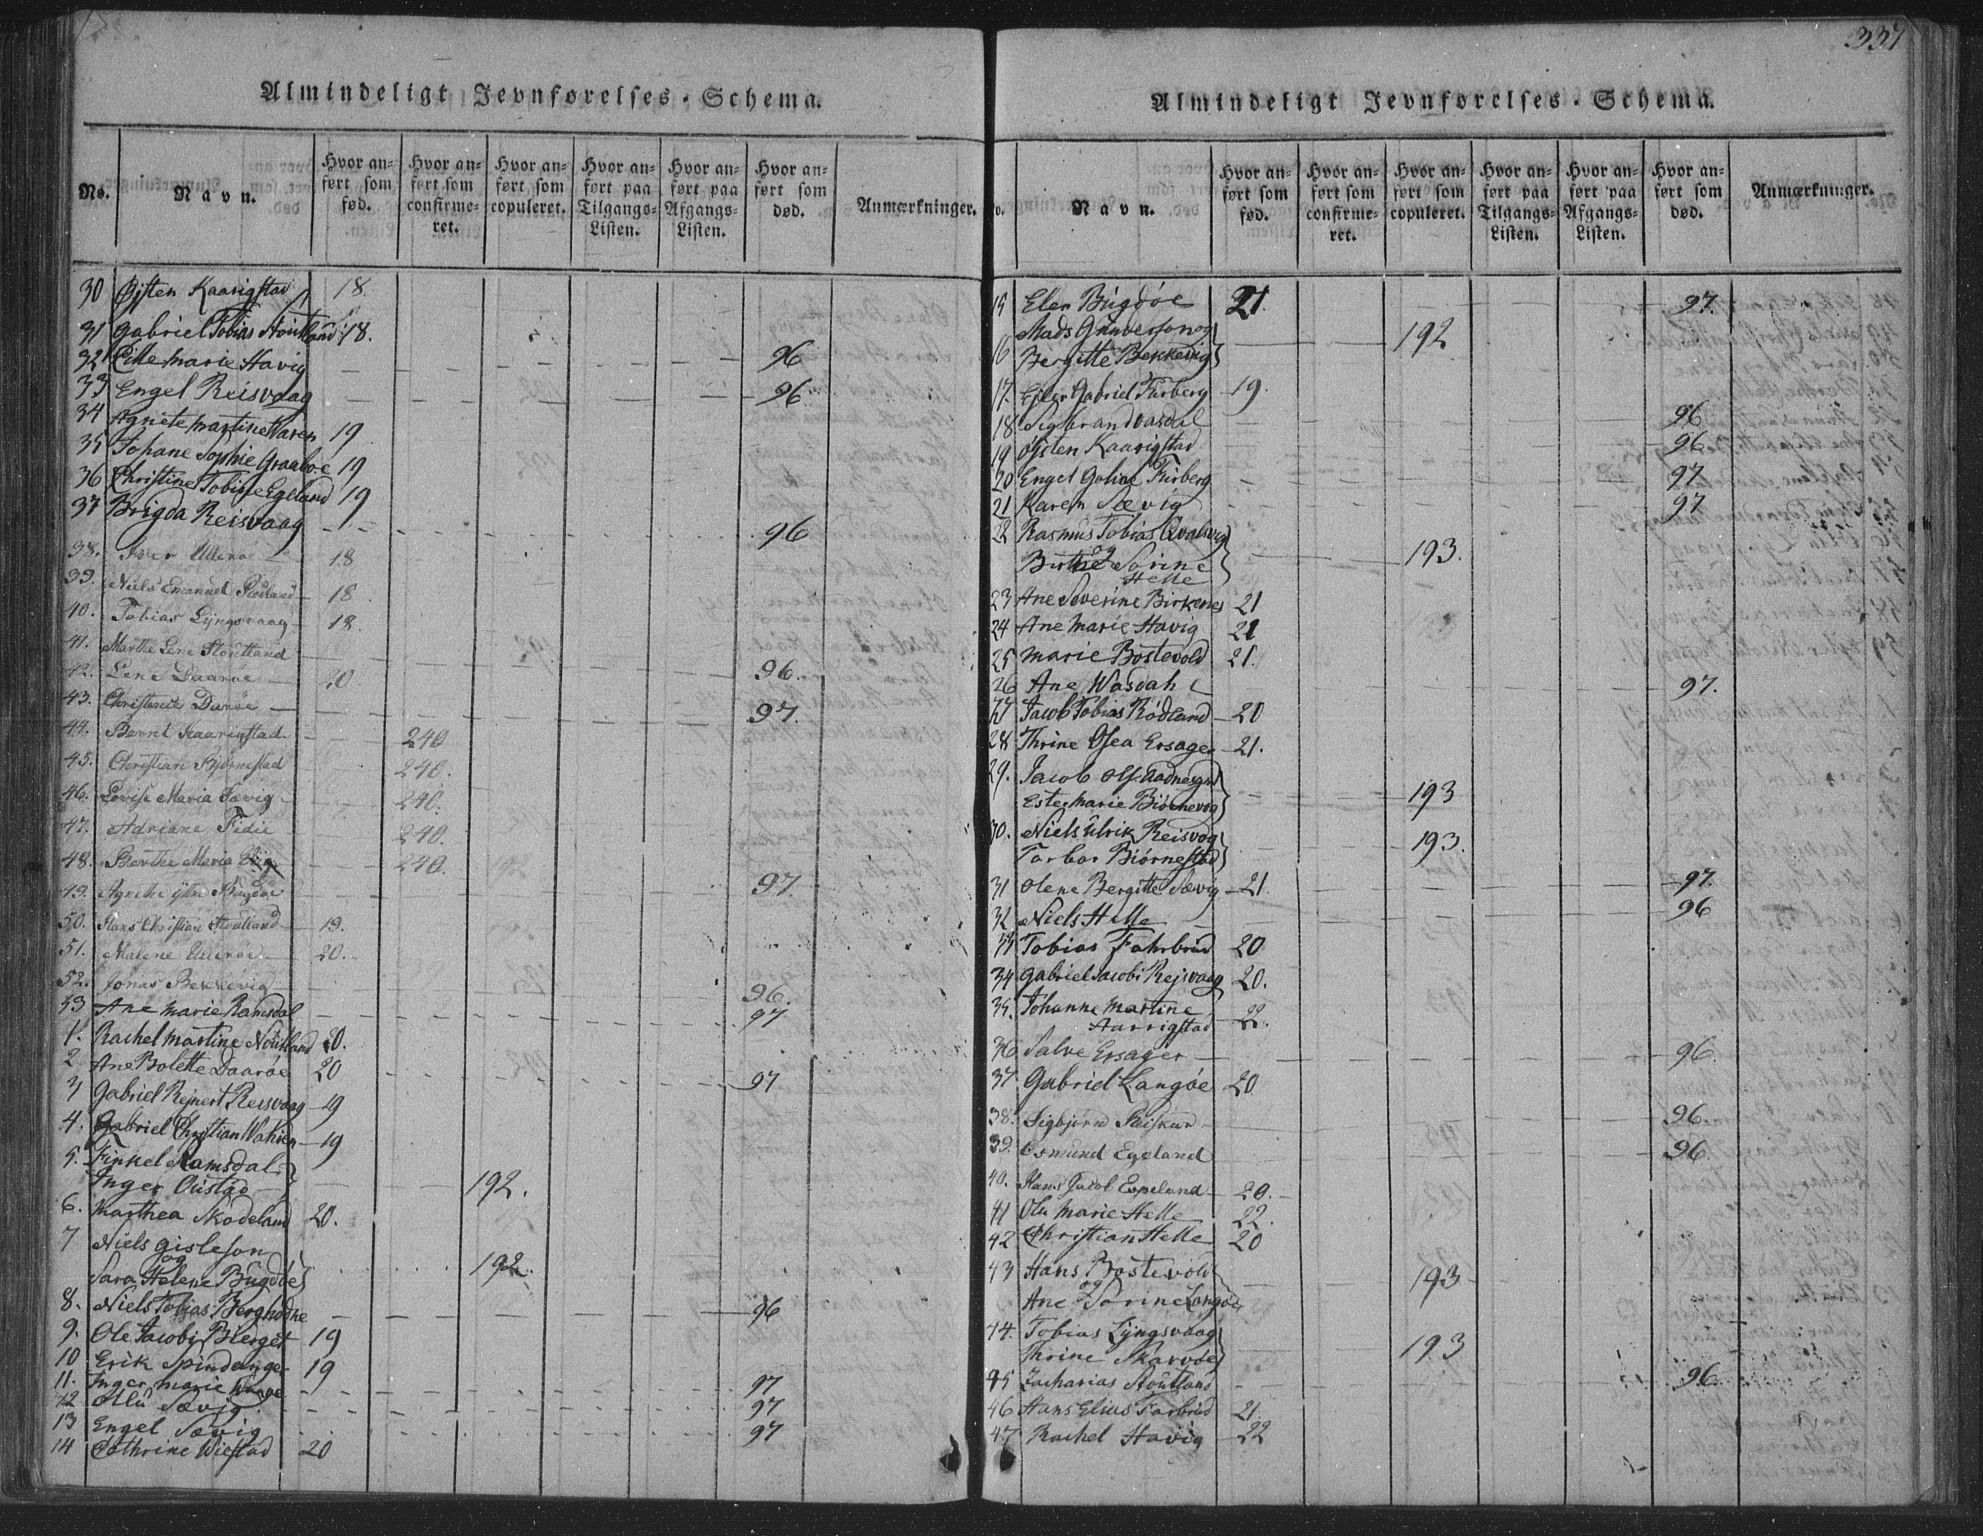 337
Almindeligt Jevnførelses-Schema.
No. Navn. Hvor anført som fød. Hvor anført som confirmeret. Hvor anført som copuleret. Hvor anført paa Tilgangs-Listen. Hvor anført paa Afgangs-Listen. Hvor anført som død. Anmærkninger.
30 Øjsten Kaarigstad 18.
31 Gabriel Tobias Stoutland 18.
32 marie Havig 96
33 Engel Reisvaag 96
34 Agnete martine Waren 19
35 Johane Sophie Graaboe 19
36 Christine Tobine Egeland 19
37 Brigda Reisvaag 96
38. Iver Ullerøe 18
39. Niels Emanuel Rødland 18
40. Tobias Lÿngsvaag 18
41. Marthe Lene Stoutland
42. Lene Daarøe 20 96.
43. Darøe 97.
44. Bernt Kaarigstad 240
45. Christian Biørnestad 240.
46. Lovise Maria Sævig 240.
47. Adriane Fidie 240.
48. Berthe Maria 240.
49. Agnethe Bugdøe 97.
50. Hans Christian Stoutland 19.
51. Malene Ullerøe 20.
52. Jonas Bekkevig 96.
53 Ane marie Ramsdal 97
1. Rachel martine Noutland 20.
2 Ane Bolette Daarøe 20
3 Gabriel Rejnert Reisvaag 19 97
4. Gabriel Christian 19
5. Finkel Ramsdal
Inger Oustad 192.
6. Marthea Skodeland 20.
7 Niels Gisleson
og
Sara Helene Bugdøe 192.
8. Niels Tobias Berghodne 96
9. Ole Jacobi Bierget 19
10 Erik Spindanger 19
11. Inger marie 97
12 Ollu Sævig 97
13 Engel Sævig 97
14 Cathrine Wiestad 20
Almindeligt Jevnførelses-Schema.
No. Navn. Hvor anført som fød. Hvor anført som confirmeret. Hvor anført som copuleret. Hvor anført paa Tilgangs-Listen. Hvor anført paa Afgangs-Listen. Hvor anført som død. Anmærkninger.
15 Elen Bugdøe 21. 97.
16 Mads Gunverson og
Bergitte Bekkevig 192
17. Gabriel Furberg 19.
18 Sigbrand Vasdal 96
19 Øjsten Kaarigstad 96
20 Engel Goline Furberg 97
21 Karen Sævig 97
22 Rasmus Tobias Qvalsvig
og
Birthe Sorine
Helle 193.
23 Ane Severine Birkenes 21
24 Ane Marie Havig 21
25 Marie Bostevold 21.
26 Ane Wasdahl 97.
27 Jacob Tobias Rødland 20
28 Thrine Osea Ersager 21.
29. Jacob Ols.
Ester Marie Biørnevog 193
30. Niels Ulrik Reisvog
Torbor Biørnestad 193.
31 Olene Bergitte Sævig 21. 97.
32 Niels Helle 96
33 Tobias Fahrbrud 20
34 Gabriel Jacobi Rejsvaag 20.
35. Johanne Martine
Aarrigstad 22.
36 Salve Ersager 96.
37 Gabriel Langøe 20
38. Sigbjørn 96.
39. Osmund Egeland 96
40. Hans Jacob Espeland 20.
41 Olu Marie Helle 22.
42 Christian Helle 20
43 Hans Bostevold
og
Ane Sorine Langøe 193
44. Tobias Lÿngsvaag
Thrine Skarvøe 193
45 Zacharias Stoutland 96
46 Hans Elius Farbrud 21
47 Rachel Havig 22